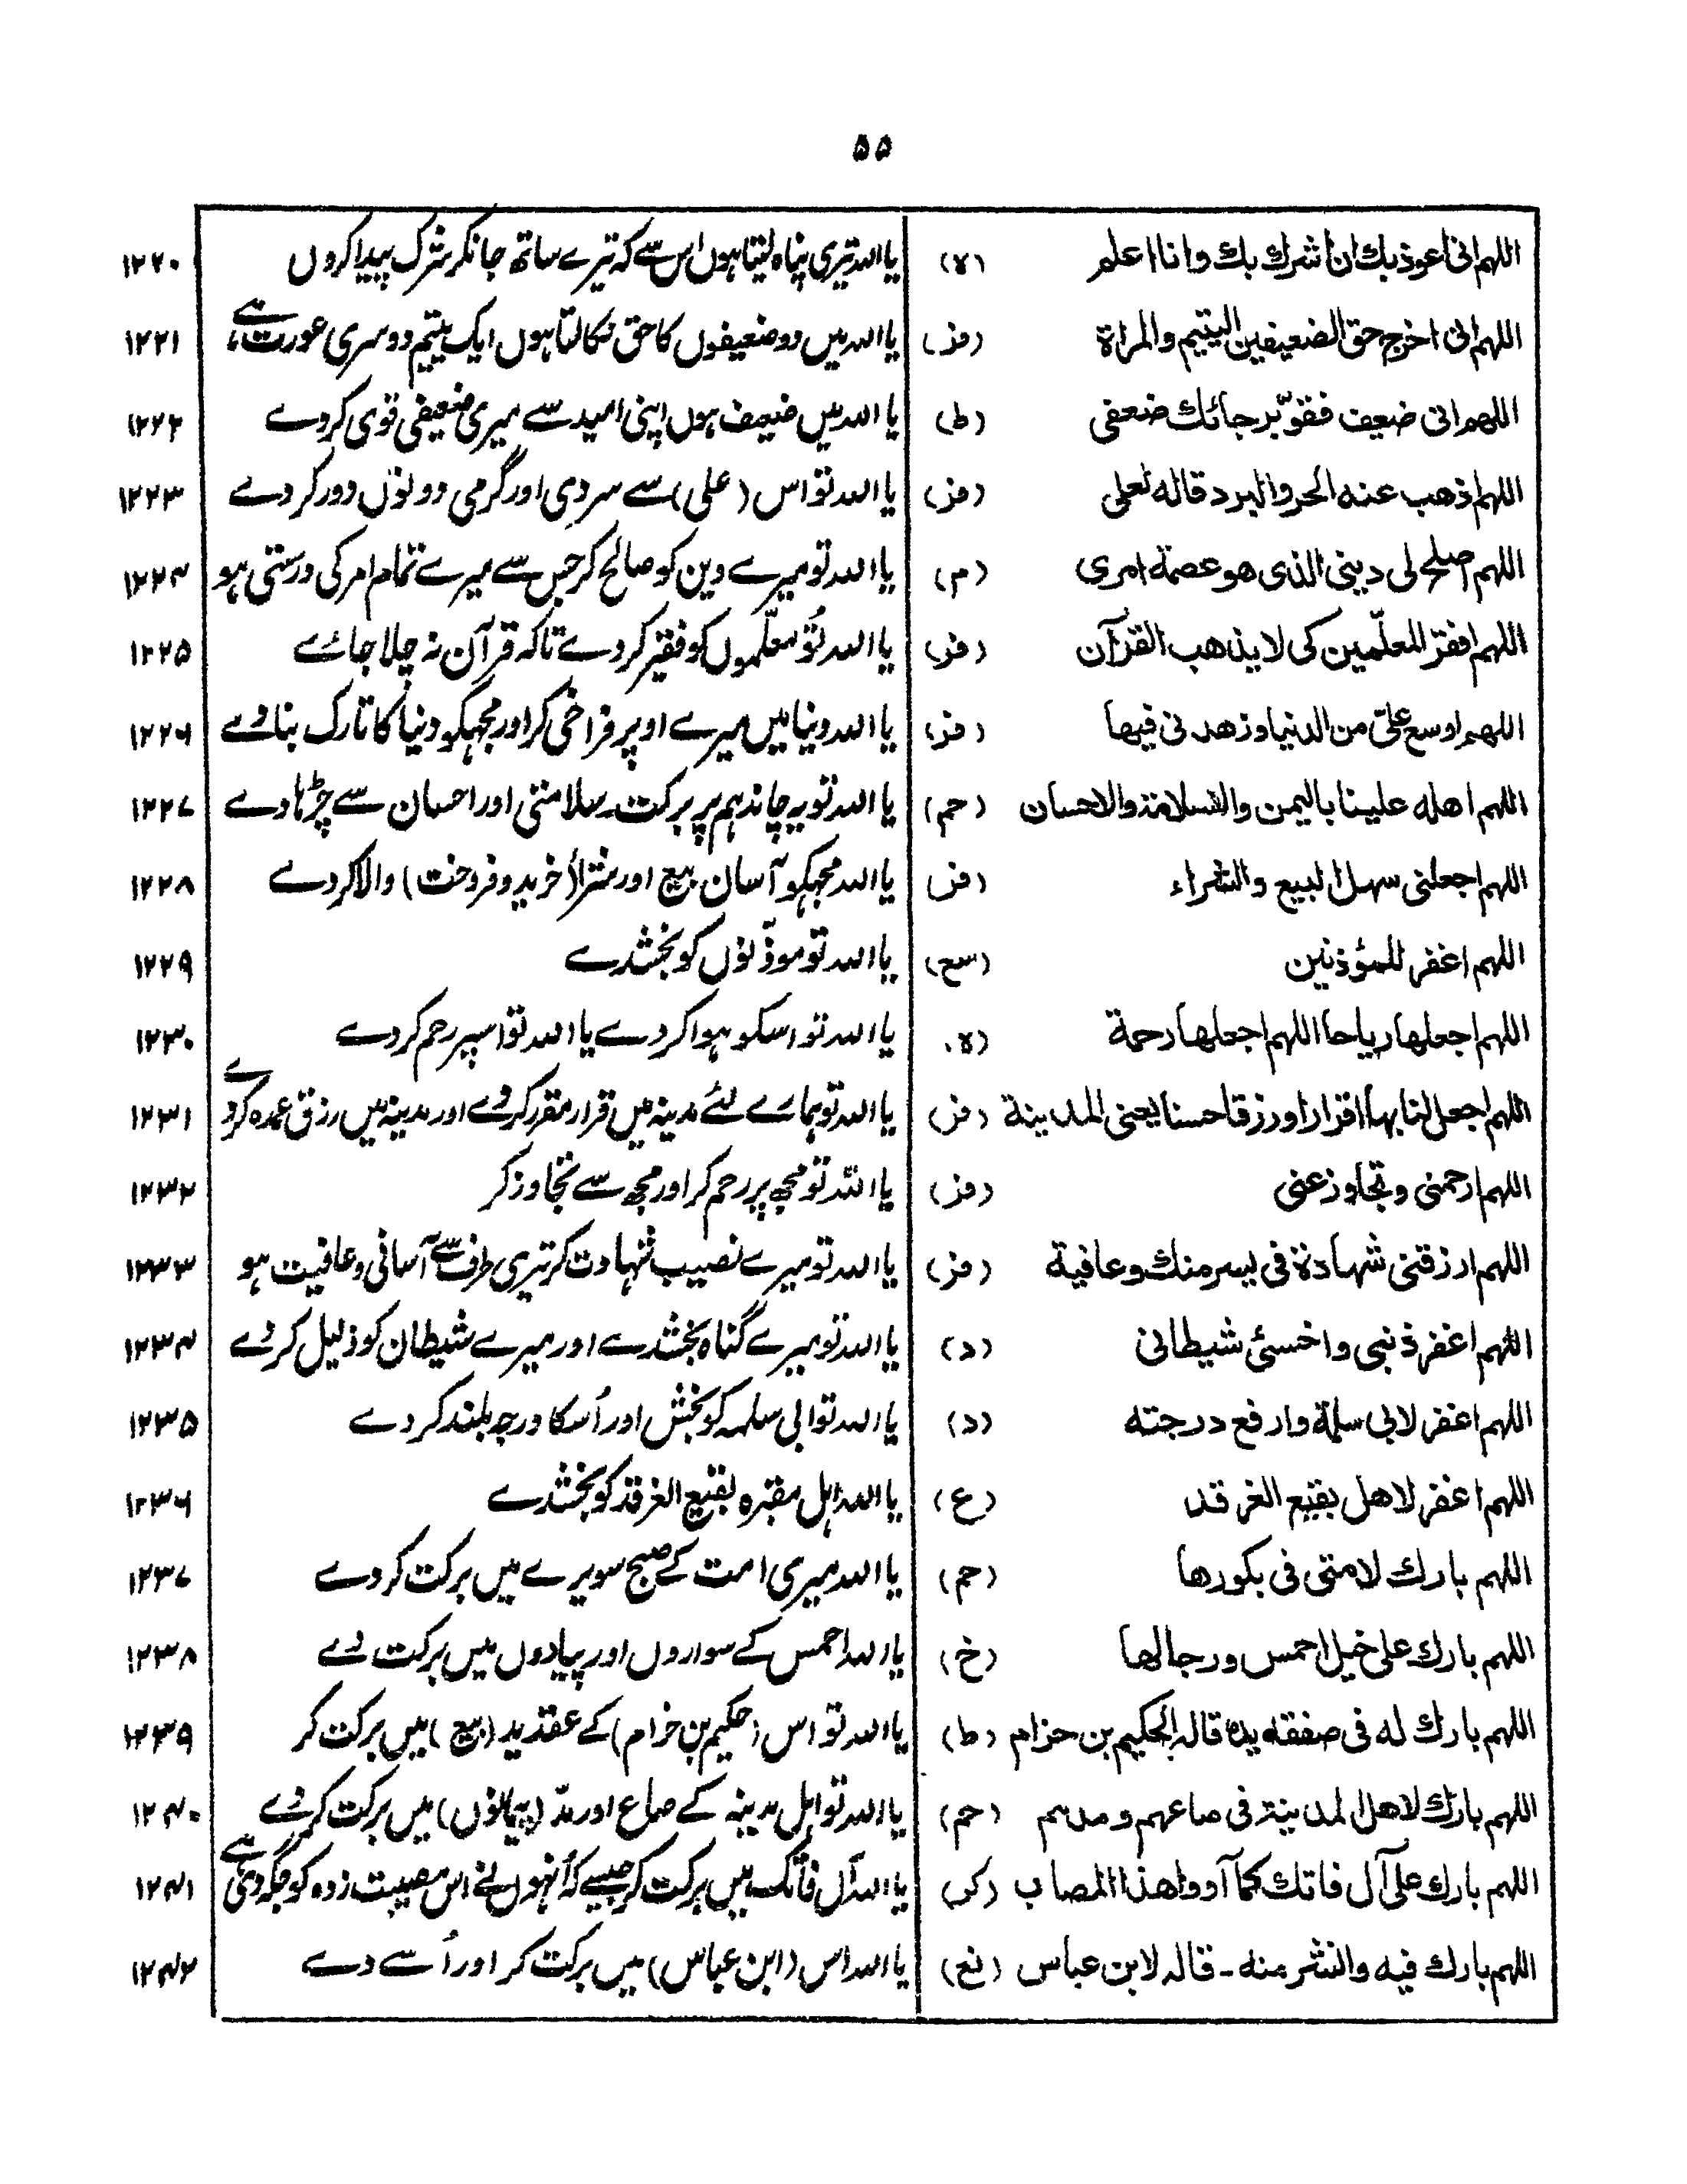 ۵۵
اللهم انی اعوذ بك ان اشرك بك وانا اعلم (ہ) یا اللہ تیری پناہ لیتا ہوں اس سے کہ تیرے ساتھ جانکر شرک پیدا کروں ۱۲۲۰
اللهم انی اخرج حق الضعیفین الیتیم والمراة (فز) یا اللہ میں دو ضعیفوں کا حق نکالتا ہوں ایک یتیم دوسری عورت ہے ۱۲۲۱
اللهم انی ضعیف فقوّ برجائك ضعفی (ط) یا اللہ میں ضعیف ہوں اپنی امید سے میری ضعیفی قوی کردے ۱۲۲۲
اللهم اذهب عنه الحر والبرد قاله لعلی (فز) یا اللہ تو اس (علی) سے سردی اور گرمی دونوں دور کردے ۱۲۲۳
اللهم اصلح لی دینی الذی هو عصمة امری (م) یا اللہ تو میرے دین کو صالح کر جس سے میرے تمام امر کی درستی ہو ۱۲۲۴
اللهم افقر المعلّمین کی لا یذهب القرآن (فز) یا اللہ تُو معلّموں کو فقیر کردے تاکہ قرآن نہ چلا جائے ۱۲۲۵
اللهم اوسع علیّ من الدنیا وزهدنی فیها (فز) یا اللہ دنیا میں میرے اوپر فراخی کر اور مجہکو دنیا کا تارک بنا دے ۱۲۲۶
اللهم اهله علینا بالیمن والسلامة والاحسان (حم) یا اللہ تو یہ چاند ہم پر برکت سلامتی اور احسان سے چڑہا دے ۱۲۲۷
اللهم اجعلنی سهل البیع والشراء (فز) یا اللہ مجہکو آسان بیع اور شرا (خرید و فروخت) والا کردے ۱۲۲۸
اللهم اغفر للمؤذنین (سع) یا اللہ تو موذّنوں کو بخشدے ۱۲۲۹
اللهم اجعلها ریاحا اللهم اجعلها رحمة (ہ) یا اللہ تو اسکو ہوا کردے یا اللہ تو اسپر رحم کردے ۱۲۳۰
اللهم اجعل لنا بها قرارا ورزقا حسنا یعنی المدینة (فز) یا اللہ تو ہمارے لئے مدینہ میں قرار مقرر کردے اور مدینہ میں رزق عمدہ کردے ۱۲۳۱
اللهم ارحمنی وتجاوز عنی (فز) یا اللہ تو مجھ پر رحم کر اور مجھ سے تجاوز کر ۱۲۳۲
اللهم ارزقنی شهادة فی یسر منك وعافیة (فز) یا اللہ تو میرے نصیب شہادت کر تیری طرف سے آسانی و عافیت ہو ۱۲۳۳
اللهم اغفر ذنبی واخسئ شیطانی (د) یا اللہ تو میرے گناہ بخشدے اور میرے شیطان کو ذلیل کردے ۱۲۳۴
اللهم اغفر لابی سلمة وارفع درجته (د) یا اللہ تو ابی سلمہ کو بخش اور اُسکا درجہ بلند کردے ۱۲۳۵
اللهم اغفر لاهل بقیع الغرقد (ع) یا اللہ اہل مقبرہ بقیع الغرقد کو بخشدے ۱۲۳۶
اللهم بارك لامتی فی بکورها (حم) یا اللہ میری امت کے صبح سویرے میں برکت کردے ۱۲۳۷
اللهم بارك علی خیل احمس ورجالها (خ) یا اللہ احمس کے سواروں اور پیادوں میں برکت دے ۱۲۳۸
اللهم بارك له فی صفقة یده قاله لحکیم بن حزام (ط) یا اللہ تو اس (حکیم بن حزام) کے عقد ید (بیع) میں برکت کر ۱۲۳۹
اللهم بارك لاهل المدینة فی صاعهم ومدهم (حم) یا اللہ تو اہل مدینہ کے صاع اور مدّ (پیمانوں) میں برکت کردے ۱۲۴۰
اللهم بارك علی آل فاتك کما آووا هذا المصاب (کر) یا اللہ آل فاتک میں برکت کر جیسے کہ اُنہوں نے اس مصیبت زدہ کو جگہ دی ہے ۱۲۴۱
اللهم بارك فیه وانشر منه - قاله لابن عباس (نع) یا اللہ اس (ابن عباس) میں برکت کر اور اُسے دے ۱۲۴۲